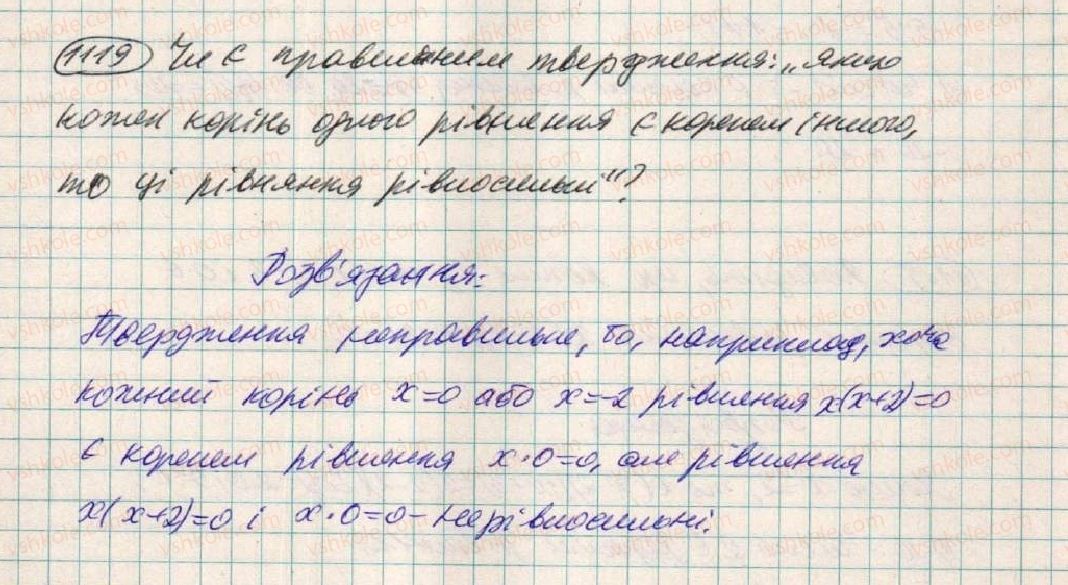 1119 Чи є правильним твердження: „якщо
кожен корінь одного рівняння є коренем іншого,
то ці рівняння рівносильні“?
Розв'язання:
Твердження неправильне, бо, наприклад, хоча
кожний корінь x=0 або x=-2 рівняння x(x+2)=0
є коренем рівняння x·0=0, але рівняння
x(x+2)=0 і x·0=0 - нерівносильні.